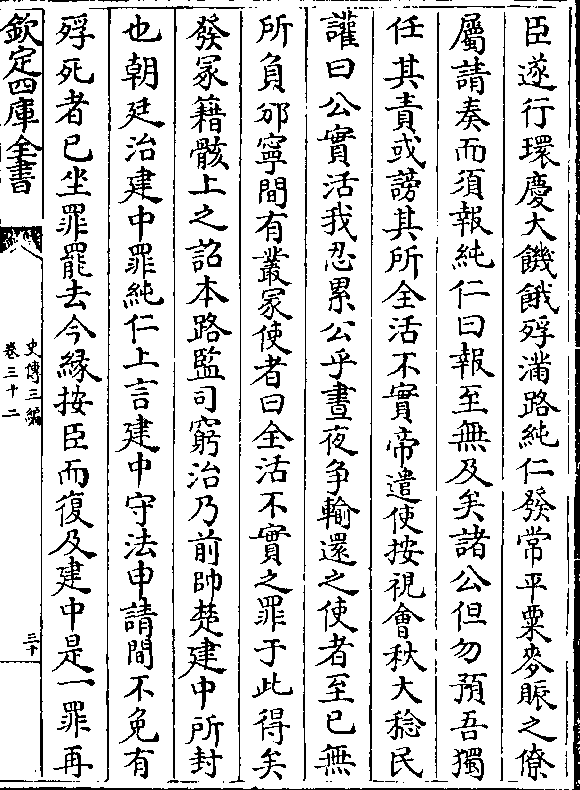 臣遂行環慶大饑餓殍滿路純仁發常平粟麥賑之僚
屬請奏而須報純仁曰報至無及矣諸公但勿預吾獨
任其責或謗其所全活不實帝遣使按視會秋大稔民
讙曰公實活我忍累公乎晝夜争輸還之使者至已無
所負邠寧間有叢冢使者曰全活不實之罪于此得矣
發冢籍骸上之詔本路監司窮治乃前帥楚建中所封
也朝廷治建中罪純仁上言建中守法申請間不免有
殍死者已坐罪罷去今縁按臣而復及建中是一罪再
欽定四庫全書
史傳三編
卷三十二
三十